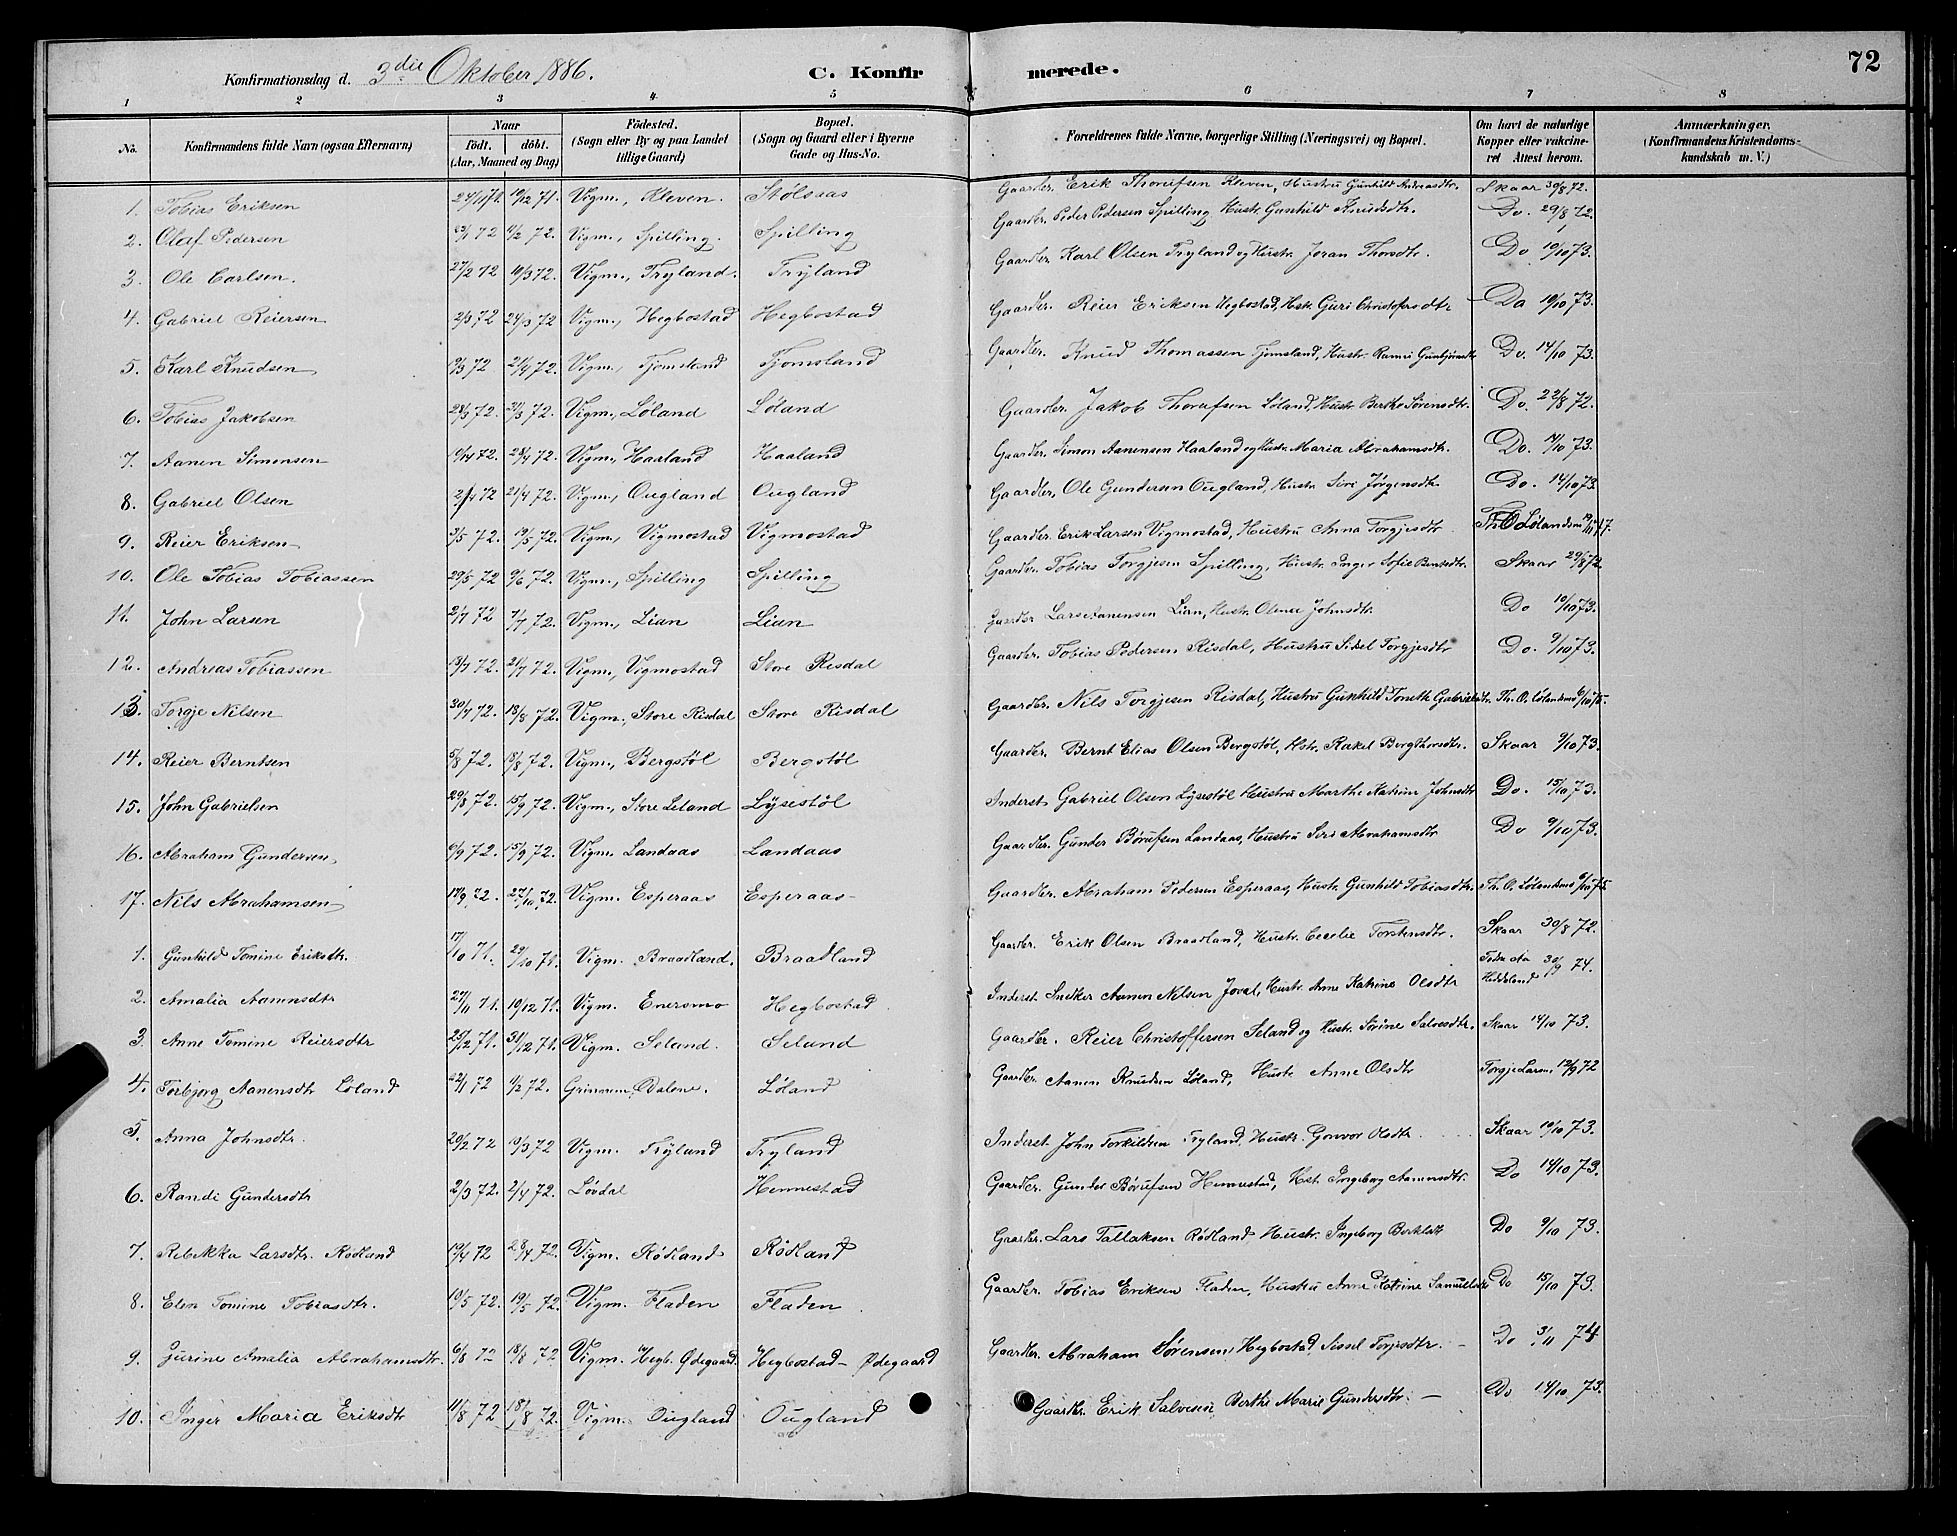 Konfirmationsdag d. 3die Oktober 1886. C. Konfirmerede. 72
1 2 3 4. 5 6 7 8
No. Konfirmandens fulde Navn (ogsaa Efternavn) Naar Født. døbt. (Aar, Maaned og Dag) Fødested. (Sogn eller By og paa Landet tillige Gaard) Bopæl. (Sogn og Gaard eller i Byerne Gade og Hus-No. Forældrenes fulde Navne, borgerlige Stilling (Næringsvei) og Bopæl. Om havt de naturlige Kopper eller vakcineret Attest herom. Anmærkninger. (Konfirmandens Kristendomskundskab m. V.)
1. Tobias Eriksen 24/11 71. 10/12 71. Vigm., Kleven. Stølsaas Gaardbr. Erik Thorufsen Kleven, Hustru Gunhild Andreasdtr. Skaar 30/8 72.
2. Olaf Pedersen 72 4/2 72. Vigm., Spilling. Spilling Gaardbr. Peder Pedersen Spilling Hustr. Gunhild Knudsdtr. Do. 29/8 72.
3. Ole Carlsen. 27/2 72 19/3 72. Vigm., Tryland. Tryland Gaardbr. Karl Olsen Tryland og Hustr. Joran Thorsdtr. Do 10/10 73.
4. Gabriel Reiersen 2/3 72 24/3 72 Vigm., Hegbostad Hegbostad Gaardbr. Reier Eriksen Hegbostad, Hstr. Guri Christofersdtr Do 10/10 73.
5. Karl Knudsen 72 21/4 72. Vigm., Tjomsland Tjomsland Gaardbr. Knud Thomassen Tjomsland, Hustr. Do. 14/10 73.
6. Tobias Jakobsen 28/3 72. 31/3 72. Vigm., Løland Løland Gaardbr. Jakob Thorufsen Løland, Hustr. Berthe Sørensdtr. Do. 22/8 72.
7. Aanen Simonsen 72. 28/4 72. Vigm., Haaland Haaland Gaardbr. Simon Aanensen Haaland og Hustr. Maria Abrahamsdtr. Do. 73.
8. Gabriel Olsen 2/4 72 21/4 72. Vigm., Ougland Ougland Gaardbr. Ole Gundersen Ougland, Hustr. Siri Jørgensdtr. Do. 14/10 73.
9. Reier Eriksen 3/5 72. 19/5 72. Vigm., Vigmostad Vigmostad Gaardbr. Erik Larsen Vigmostad, Hustru Anna Torgjesdtr Th. O. Lølandsmo
10. Ole Tobias Tobiassen 29/5 72 9/6 72. Vigm., Spilling Spilling Gaardbr. Tobias Torgjesen Spilling, Hustr. Inger Sofie Berntsdtr. Skaar 29/8 72.
11. John Larsen 2/7 72 7/7 72. Vigm., Lian Lian Gaardbr Lars Aanensen Lian, Hustr. Olene Johnsdtr. Do 10/10 73.
12. Andreas Tobiassen 13/7 72. 21/7 72. Vigm., Vigmostad Store Risdal Gaardbr. Tobias Pedersen Risdal, Hustru Sibel Torgjesdtr Do. 9/10 73.
13. Torgje Nilsen 30/7 72. 18/8 72. Vigm., Store Risdal Store Risdal Gaardbr. Nils Torgjesen Risdal, Hustru Gunhild Tonette Gabrielsdtr. Th. O. Lølandsmo 6/10 75.
14. Reier Berntsen 5/8 72. 18/8 72. Vigm., Bergstøl Bergstøl Gaardbr. Bernt Elias Olsen Bergstøl, Hstr. Rakel Bergthorsdtr. Skaar 9/10 73.
15. John Gabrielsen 29/8 72. 15/9 72. Vigm., Store Leland Lysestøl Inderst Gabriel Olsen Lysestøl Hustru Marthe Katrine Johnsdtr Do. 15/10 73.
16. Abraham Gundersen 6/9 72. 15/9 72. Vigm. Landaas Landaas Gaardbr. Gunder Børufsen Landaas, Hustru Siri Abrahamsdtr Do 9/10 73.
17. Nils Abrahamsen 72. 27/10 72. Vigm. Esperaas Esperaas Gaardbr. Abraham Pedersen Esperaas, Hustr. Gunhild Tobiasdtr. Th. O. Lølandsmo 6/10 75.
1. Gunhild Tomine Eriksdtr. 17/10 71. 29/10 71. Vigm. Braadland. Braadland Gaardbr. Erik Olsen Braadland, Hustr. Cecelie Torstensdtr. Skaar 30/8 72.
2. Amalia Aanensdtr 27/11 71. 10/12 71. Vigm. Enersmo Hegbostad Inderst Snedker Aanen Nilsen Joval, Hustr. Anne Katrine Olsdtr Heddeland 30/9 74.
3. Anne Tomine Reiersdtr 25/12 71. 31/12 71. Vigm. Seland. Seland Gaardbr. Reier Christoffersen Seland og Hustr. Sørine Salvesdtr. Skaar 14/10 73.
4. Torbjørg Aanensdtr Løland 22/1 72 72. Grinnum, Dalene. Løland Gaardbr. Aanen Knudsen Løland, Hustr. Anne Olsdtr Torgje Larsen 12/9 72
5. Anna Johnsdtr. 29/2 72 19/3 72 Vigm. Tryland Tryland Inderst. John Torkildsen Tryland, Hustr. Gonvor Olsdtr. Skaar 10/10 73.
6. Randi Gundersdtr 2/3 72. 2/4 72. Løvdal Hennestad Gaardbr. Gunder Børufsen Hennestad, Hst. Ingeborg Aanensdtr. Do 14/10 73.
7. Rebekka Larsdtr. Rødland 19/4 72 28/4 72. Vigm. Rødland Rødland Gaardbr. Lars Tallaksen Rødland Hustr. Ingeborg Do 9/10 73.
8. Elen Tomine Tobiasdtr. 10/5 72. 19/5 72. Vigm. Fladen Fladen Gaardbr. Tobias Eriksen Fladen, Hustru Anne Katrine Samuelsdtr Do 15/10 73.
9. Gurine Amalia Abrahamsdtr. 6/8 72 18/8 72. Vigm. Hegb. Ødegaard. Hegbostad - Ødegaard Gaardbr. Abraham Sørensen, Hegbostad Sissel Torjesdtr. - Do 3/11 74
10. Inger Maria Eriksdtr 11/8 72 18/8 72. Vigm. Ougland Ougland Gaardbr. Erik Salvesen, Berthe Marie Gundersdtr. - Do 14/10 73.